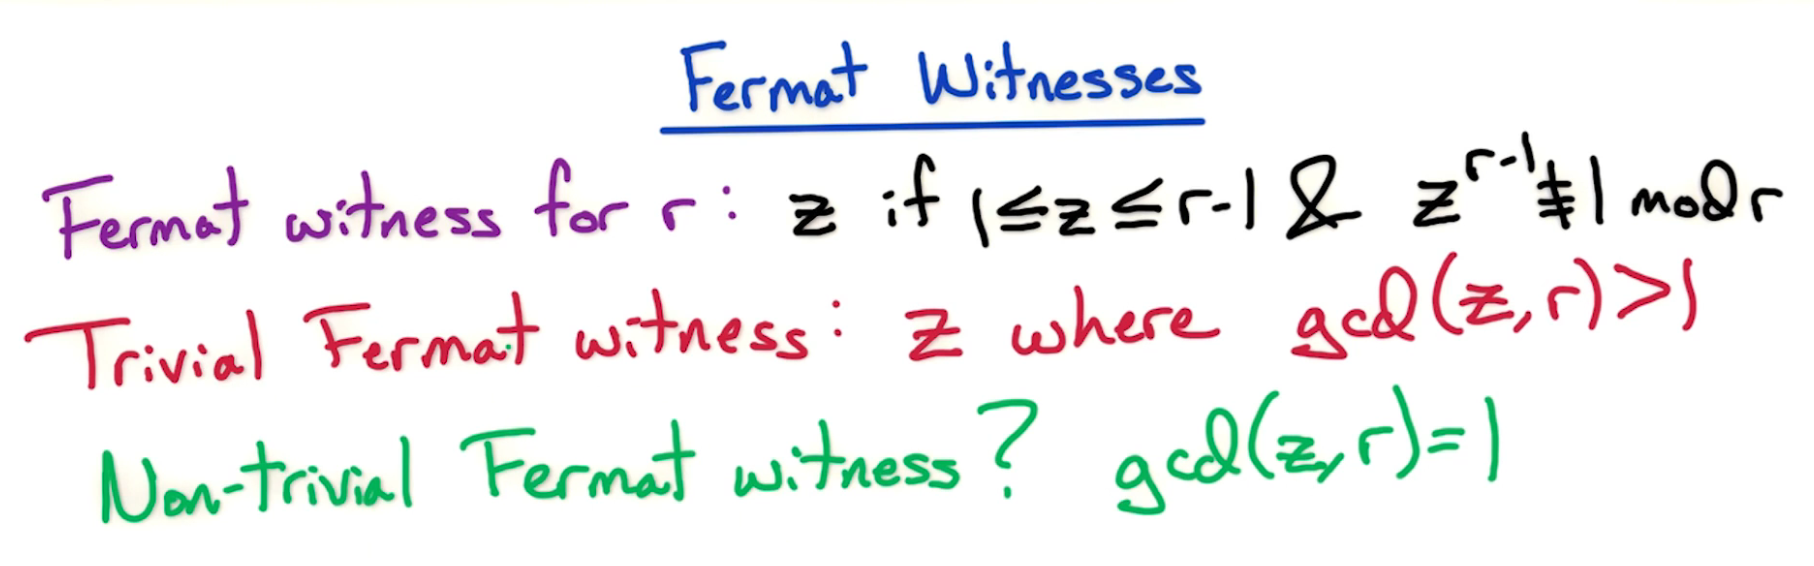 Fermat Witnesses
Fermat witness for r: z if 1≤z≤r-1 & z^{r-1}≢1 mod r
Trivial Fermat witness: z where gcd(z,r)>1
Non-trivial Fermat witness? gcd(z,r)=1